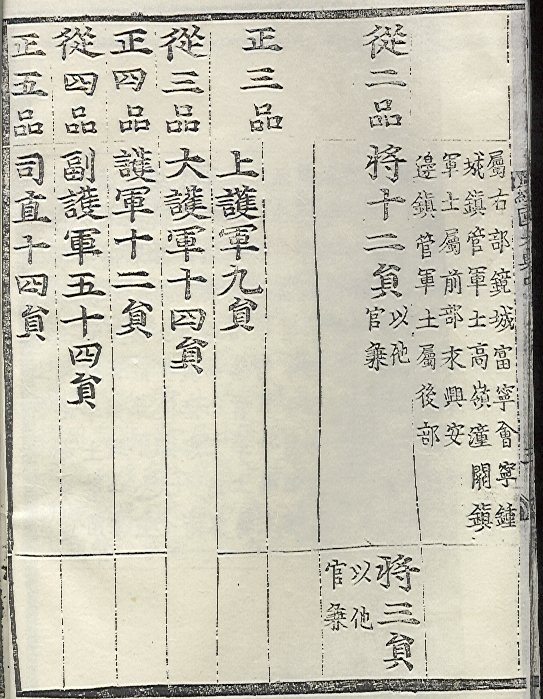 屬右部鏡城富寧會寧鍾
城鎮管軍士高嶺潼關鎮
軍士屬前部永興安
邊鎮管軍士屬後部
從二品 將十二貟 以他
官兼
將三貟 以他
官兼
正三品
上護軍九貟
從三品 大護軍十四貟
正四品 護軍十二貟
從四品 副護軍五十四貟
正五品 司直十四貟